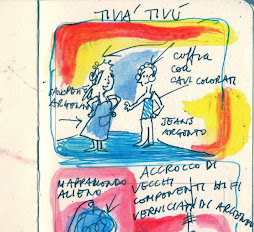 TIVÀ TIVÙ
cuffia
con
CAVI COLORATI
ARGENTO
JEANS
ARGENTO
ACCROCCO DI
VECCHI
COMPONENTI HI FI
VERNICIATI DI ARGENTO
MAPPAMONDO
ALIENO